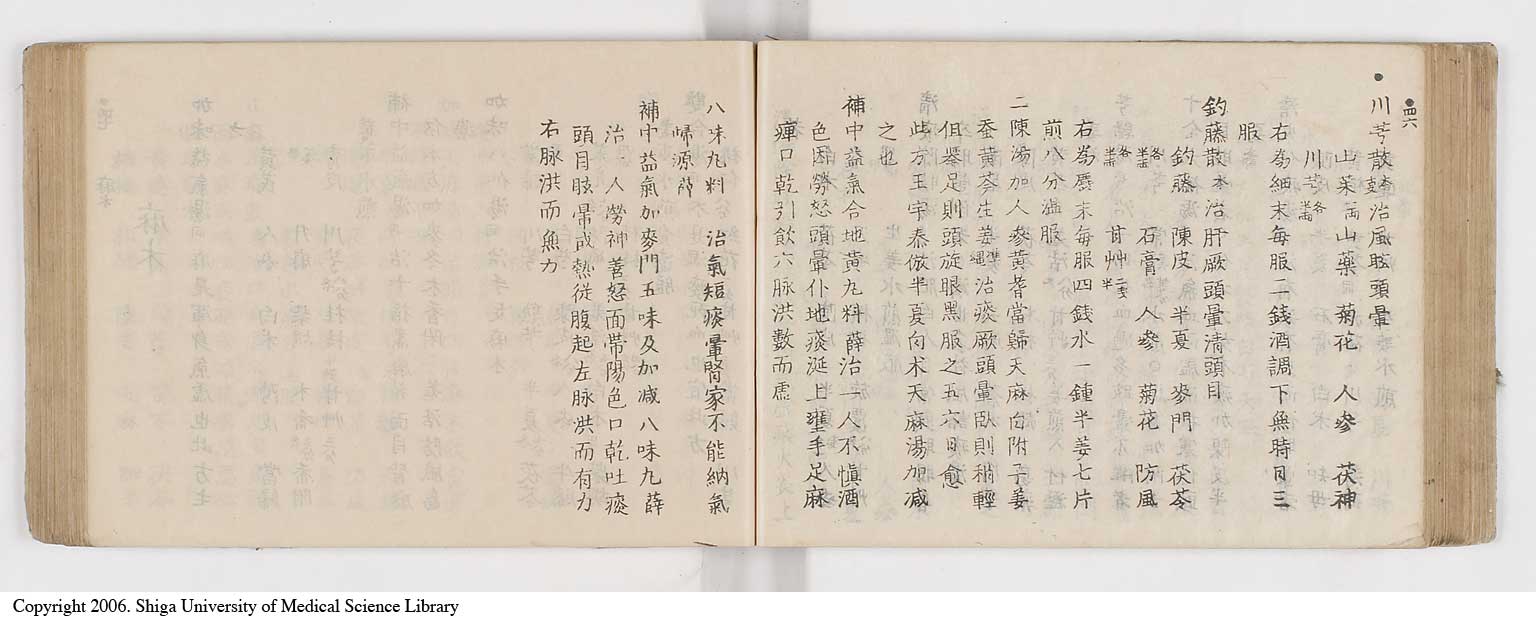 四六
川芎散 治風眩頭暈
山茱一両 山藥 菊花 人參 茯神
川芎各半両
右為細末毎服二銭酒調下無時日三
服
釣藤散本治肝厥頭暈清頭目
釣藤 陳皮 半夏 麥門 茯苓
各半両 石膏 人參 菊花 防風
甘艸
右為麁末毎服四銭水一鍾半姜七片
煎八分温服
二陳湯加人參黄芪當歸天麻白附子姜
蚕黄芩生姜 治痰厥頭暈臥則稍軽
但擧足則頭旋眼黒服之五六日愈
此方王宇泰倣半夏白朮天麻湯加減
之也
補中益氣合地黄丸料薛治一人不慎酒
色困勞怒頭暈仆地痰涎上壅手足麻
痺口乾引飲六脉洪數而虚
八味丸料 治氣短痰暈腎家不能納氣
帰源薛
補中益氣加麥門五味及加減八味丸薛
治 人勞神善怒面帯陽色口乾吐痰
頭目眩暈或熱従腹起左脉洪而有力
右脉洪而無力
Copyright 2006. Shiga University of Medical Science Library